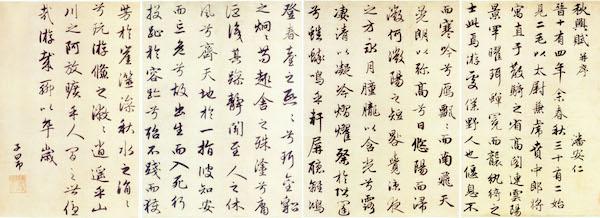 秋興賦 并序
潘安仁
晉十有四年余春秋三十有二始
見二毛以太尉掾兼虎賁中郎將
寓直于散騎之省高閣連雲陽
景罕曜珥蟬冕而襲紈綺之
士此焉遊處僕野人也偃息不
而寒吟兮鴈飄飄而南飛天
晃朗以彌高兮日悠陽而浸
微何微陽之短晷覺涼夜
之方永月朣朧以含光兮露
凄清以凝冷熠燿粲於階闥
兮蟋蟀鳴乎軒屏聽離鴻
登春臺之熙熙兮珥金貂
之炯炯苟趣舍之殊塗兮庸
詎識其躁靜聞至人之休
風兮齊天地於一指彼知安
而忘危兮故出生而入死行
投趾於容跡兮殆不踐而獲
芳於崖澨澡秋水之涓涓
兮玩游鯈之潎潎逍遙乎山
川之阿放曠乎人間之世優
哉游哉聊以卒歲
子昂